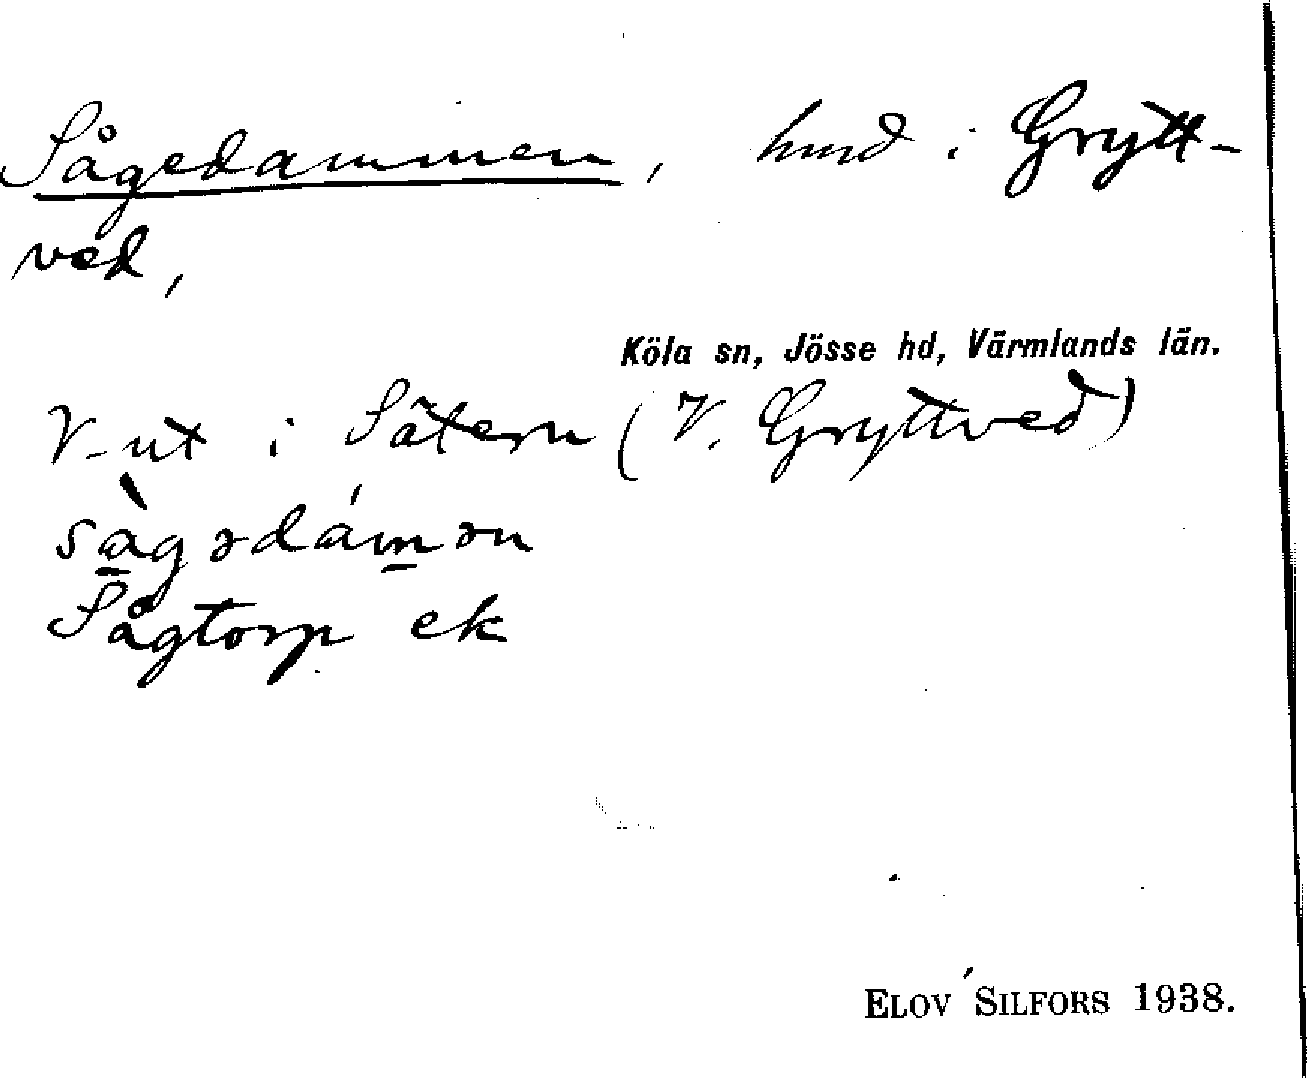 Sågedammen, hmd i Grytt-
ved,
Köla sn, Jösse hd, Värmlands län.
V-ut i Sätern (V. Gryttved)
sàgədámən
Sågtorp ek
ELOV SILFORS 1938.